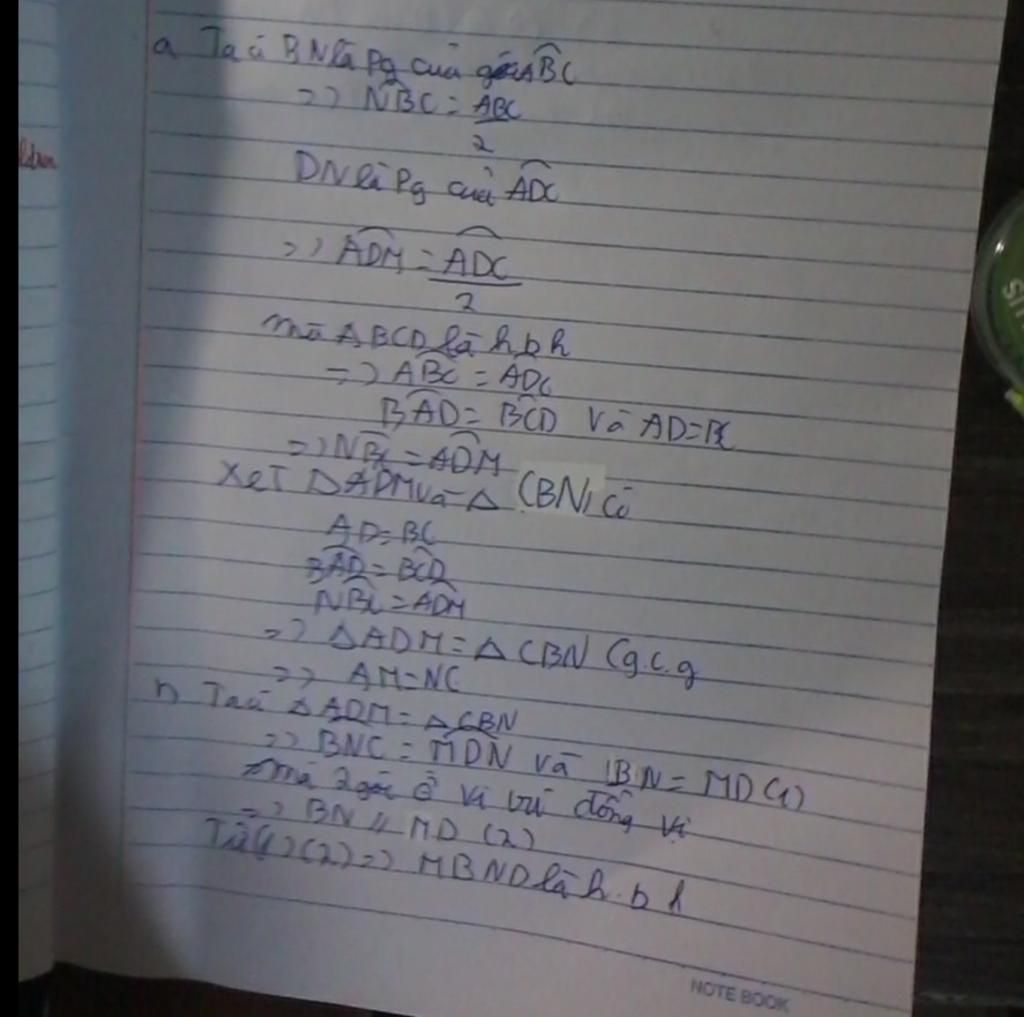 a Ta có BN là Pg của góc ABC
=> NBC = ABC
2
DN là Pg của ADC
=> ADM = ADC
2
mà ABCD là hbh
=> ABC = ADC
BAD = BCD và AD=BC
=> NBC = ADM
Xét Δ ADM và Δ CBN có
AD = BC
BAD = BCD
NBC = ADM
=> Δ ADM = Δ CBN (g.c.g
=> AM = NC
b Ta có Δ ADM = Δ CBN
=> BNC = MDN và BN = MD (1)
mà 2 góc ở vị trí đồng vị
=> BN // MD (2)
Từ (1) (2) => MBND là h.b h
NOTE BOOK